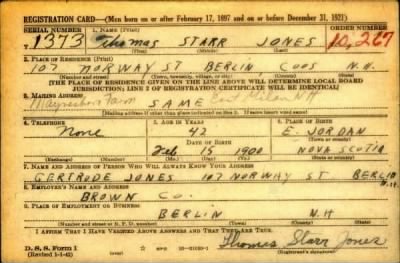 REGISTRATION CARD—(Men born on or after February 17, 1897 and on or before December 31, 1921)
SERIAL NUMBER 1. NAME (Print) ORDER NUMBER
T 1373 Thomas STARR JONES 10,267
(First) (Middle) (Last)
2. PLACE OF RESIDENCE (Print)
107 NORWAY ST BERLIN COOS N.H.
(Number and street) (Town, township, village, or city) (County) (State)
[THE PLACE OF RESIDENCE GIVEN ON THE LINE ABOVE WILL DETERMINE LOCAL BOARD
JURISDICTION; LINE 2 OF REGISTRATION CERTIFICATE WILL BE IDENTICAL]
3. MAILING ADDRESS
Farm SAME East Milan N.H
[Mailing address if other than place indicated on line 2. If same insert word same]
4. TELEPHONE 5. AGE IN YEARS 6. PLACE OF BIRTH
None 42 E. JORDAN
DATE OF BIRTH (Town or county)
Feb 15 1900 NOVA SCOTIA
(Exchange) (Number) (Mo.) (Day) (Yr.) (State or country)
7. NAME AND ADDRESS OF PERSON WHO WILL ALWAYS KNOW YOUR ADDRESS
GERTRUDE JONES 107 NORWAY ST BERLIN
N.H.
8. EMPLOYER'S NAME AND ADDRESS
BROWN CO.
9. PLACE OF EMPLOYMENT OR BUSINESS
BERLIN N.H
(Number and street or R. F. D. number) (Town) (County) (State)
I AFFIRM THAT I HAVE VERIFIED ABOVE ANSWERS AND THAT THEY ARE TRUE.
D. S. S. Form 1
(Revised 1-1-42) Thomas Starr Jones
(Registrant's signature)